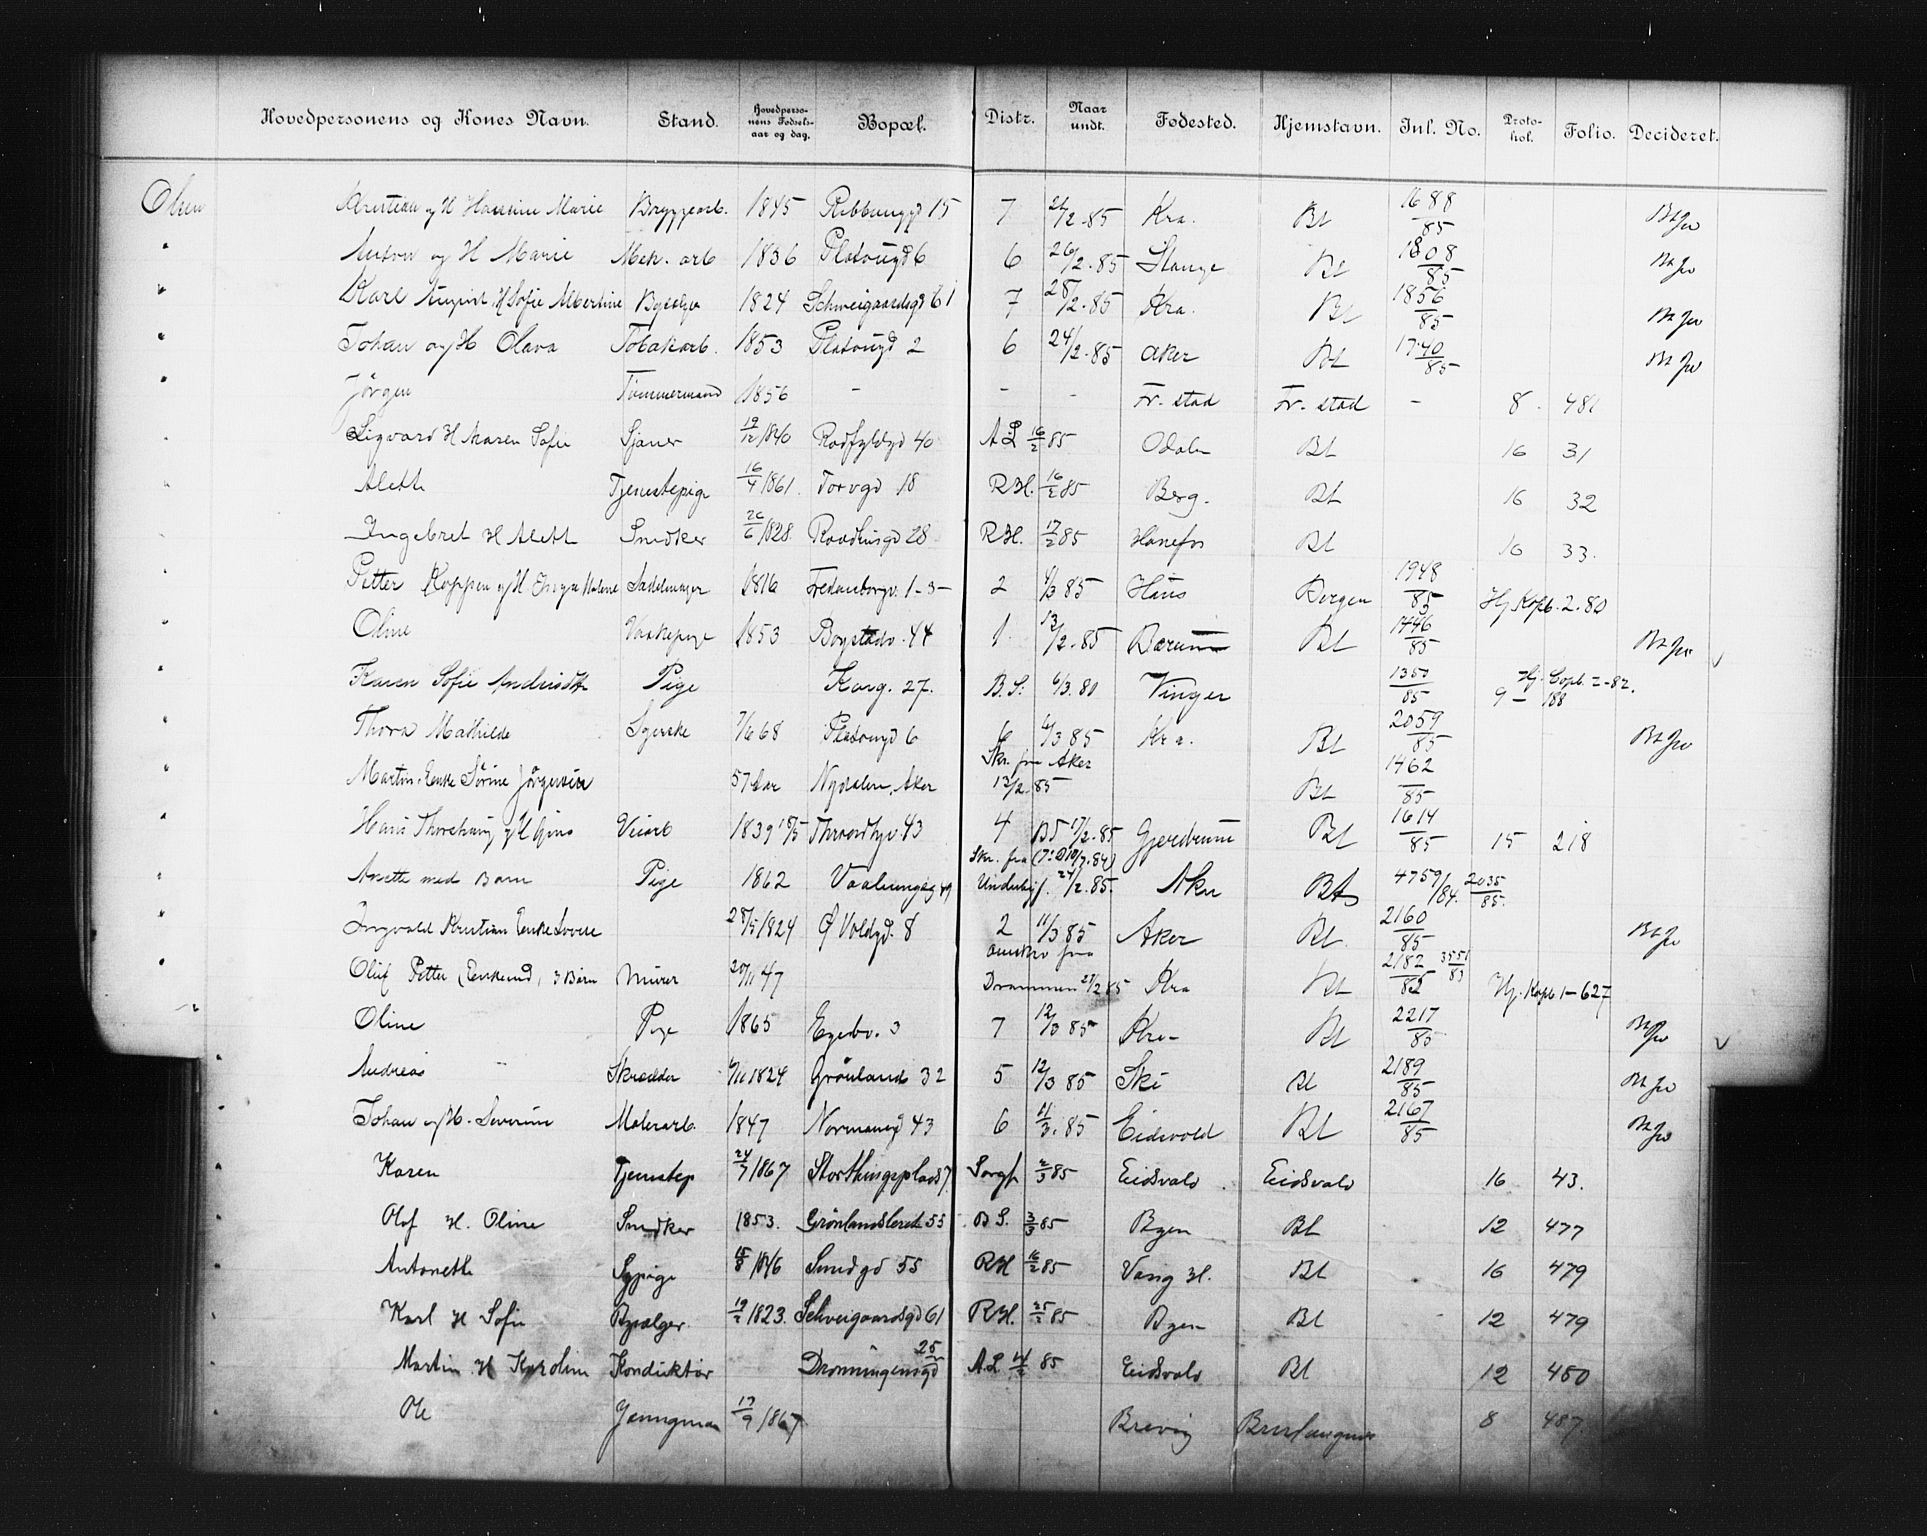 Hovedpersonens og Kones Navn. Stand. Hovedperso-nens Fødsels-aar og dag. Bopæl. Distr. Naar undt. Fødested. Hjemstavn. Inl. No. Proto-kol. Folio. Decideret.
Olsen og H Marie Bryggearb. 1845 15 7 /2 85 Kra. Bt 1688/85
" Anton og H Marie Mek. arb 1836 Platougd 6 6 26/2 85 Stange Bt 1808/85
" Karl August, H Sofie Albertine Bysælger 1824 Schweigaardsgd 61 7 28/2 85 Kra. Bt 1856/85
" Johan og H Olava Tobakarb. 1853 Platougd 2 6 24/2 85 Aker Bt 1740/85
" Jörgen Tömmermand 1856 – – - Fr. stad Fr. stad – 8 481
Sigvard H Maren Sofie Sjauer 19/12 1840 40 A L 16/2 85 Odalen Bt 16 31
Alette Tjenestepige 16/4 1861. Torvgd 18 R H. 16/2 85 Berg. Bt 16 32
Ingebret H Alette Snedker 26/6 1828 Raadhusgd 28 R H. 17/2 85 Hønefos Bt 16 33.
Petter Koppen og H Inga Malene Sadelmager 1816 Fredensborgv. 1-3- 2 /3 85 Haus Bergen 1948/85 Hj. Kopb. 2. 80
Oline Vaskepige 1853 Bogstadv. 44 1. 13/2 85 Bærum Bt 1446/85
Karen Sofie Andrisdtr Pige Karg. 27. B. S. 6/3. 80 Vinger 1350/85 Hj. Copb. 2-82. 9 – 188
Thora Mathilde Syerske 7/6 68 Platougd 6 6 6/3 85 Kra. Bt 2059/85
Martin. Enke Sörine Jörgensen 57 Aar Nydalen, Aker Skr. fra Aker 13/2. 85 Bt 1462/85
Hans og H Gina Veiarb 1839 43 4 B5 17/2. 85 Gjerdrum Bt 1614/85 15 218
Anette med Barn Pige 1862 Vaalerenggd 49 Skr. fra Underhj. 24/2. 85. Aker Bt 4759/84. 2035/85.
Ingvald Kristian Enke Lovise 28/5 1824 Ø Voldgd. 8 2 11/3 85 Aker Bt. 2160/85
Oluf Petter (Enkemd, 3 Börn Murer 20/11 47 omskr fra Drammen 27/2 85 Kra Bt 2182/85 3551/83 Hj. Kopb 1-627
Oline Pige 1865 Egebv. 3 7 12/3 85 Kra- Bt 2217/85
Andreas Skrædder /11 1824 Grönland 32 5 12/3 85 Ski Bt 2189/85
Johan og H. Severine Malerarb. 1847 Normangd 43 6 11/3. 85 Eidsvold Bt 2167/85
Karen Tjenestep 24/7 1867 Storthingsplads 7. 2/3 85 Eidsvold Eidsvold 16 43.
Olaf H. Oline Snedker 1853. Grönlandsleret 55 B S. 3/3 85 Byen Bt 12 477
Antonette Sypige 1846 Smedgd 55 R H 16/2 85 Vang H. Bt 16 479
Karl H Sofie Bysælger 19/2 1823. Schweigaardsgd 61 R H. 25/2 85 Byen Bt 12 479
Martin H Karoline Konduktør Dronningensgd 25 A. L. 85 Eidsvold Bt 12 480
Ole Jungman 17/9 1867 Brevig 8 487